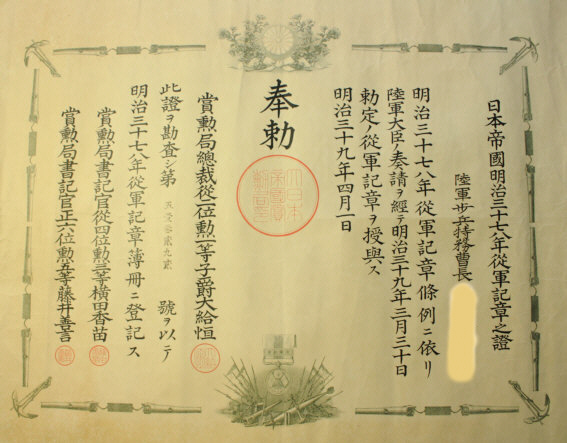 日本帝國明治三十七八年從軍記章之證
陸軍歩兵特務曹長
明治三十七八年從軍記章條例ニ依リ
陸軍大臣ノ奏請ヲ經テ明治三十九年三月三十日
勅定ノ從軍記章ヲ授與ス
明治三十九年四月一日
奉勅
賞勲局總裁從二位勲一等子爵大給恒
此證ヲ勘査シ第 號ヲ以テ
明治三十七八年從軍記章簿册ニ登記ス
賞勲局書記官從四位勲三等横田香苗
賞勲局書記官正六位勲五等藤井善言